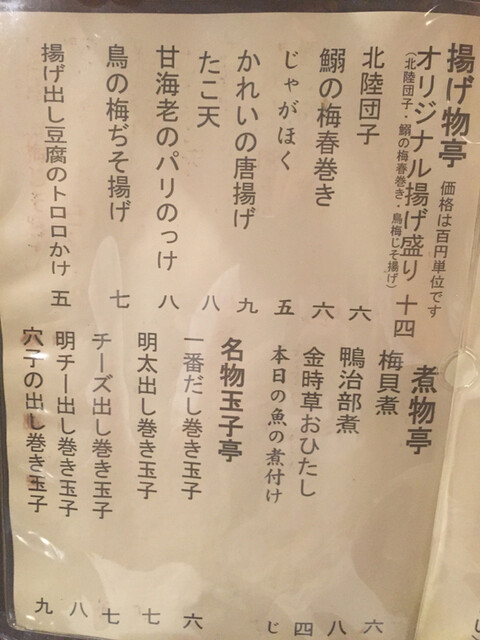 揚げ物亭 価格は百円単位です
オリジナル揚げ盛り 十四
（北陸団子・鰯の梅春巻き・鳥梅じそ揚げ）
北陸団子 六
鰯の梅春巻き 六
じゃがほく 五
かれいの唐揚げ 九
たこ天 八
甘海老のパリのっけ 八
鳥の梅ぢそ揚げ 七
揚げ出し豆腐のトロロかけ 五
煮物亭
梅貝煮 六
鴨治部煮 八
金時草おひたし 四
本日の魚の煮付け
名物玉子亭
一番だし巻き玉子 六
明太出し巻き玉子 七
チーズ出し巻き玉子 七
明チー出し巻き玉子 八
穴子の出し巻き玉子 九